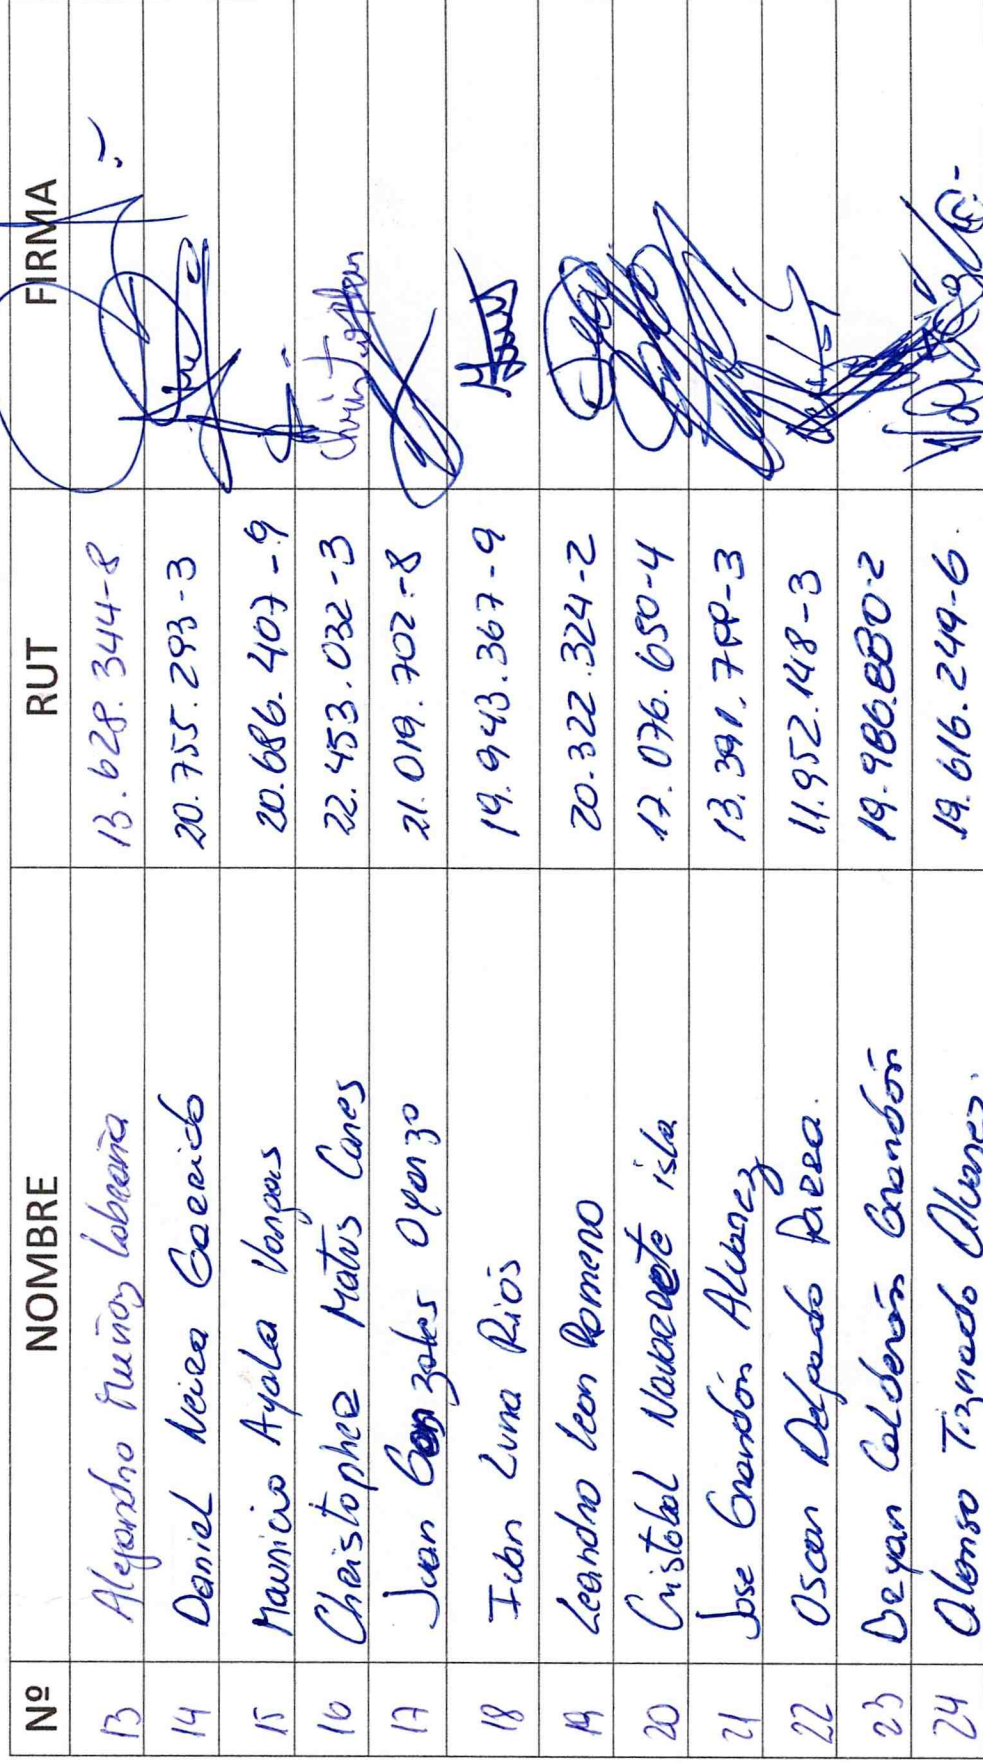 Nº NOMBRE RUT FIRMA
13 Alejandro Muñoz Lobraña 13.628.344-8
14 Daniel Neira Garrido 20.755.293-3
15 Mauricio Ayala Vargas 20.686.407-9
16 Christopher Matus Canes 22.453.032-3 Christopher
17 Juan Gonzales Oyarzo 21.019.702-8
18 Ivan Luna Rios 19.943.367-9
19 Leandro Leon Romero 20.322.324-2
20 Cristobal Navarrete isla 17.076.650-4
21 Jose Grandón Alvarez
22 Oscar Delgado Parra. 11.952.148-3
23 Brayan Calderón Grandón 19.986.880-2
24 Alonso Tiznado Alvarez. 19.616.249-6.